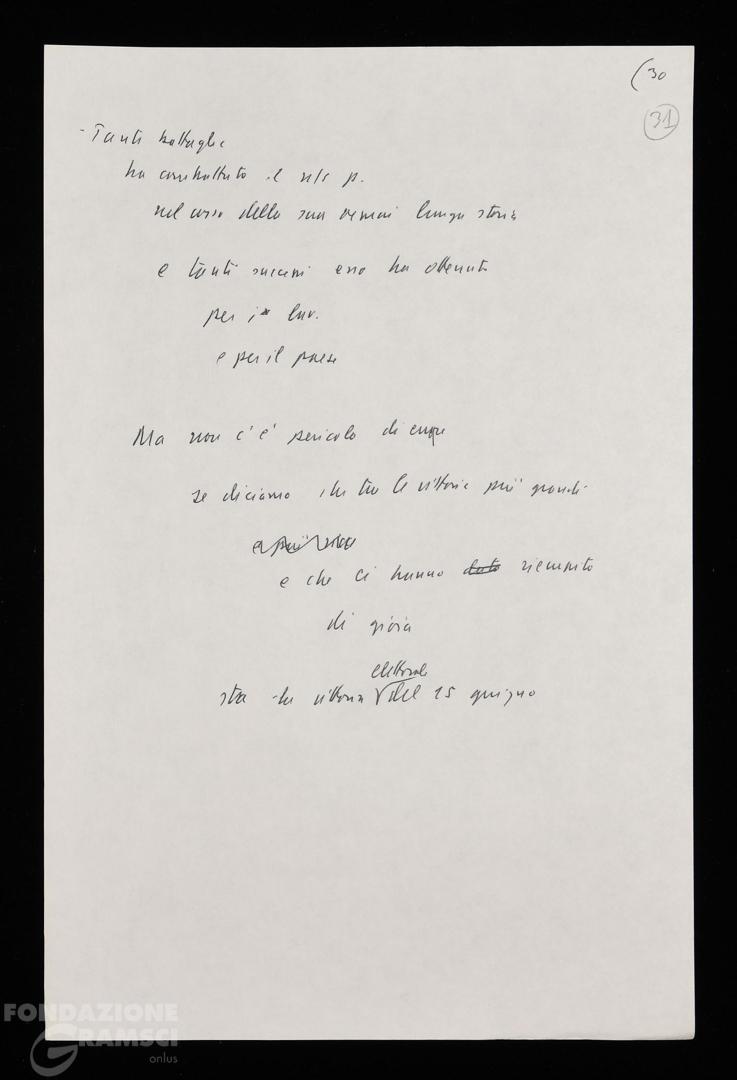 (30
31
- Tanti battaglie
ha combattuto il n/s p.
nel corso della sua ormai lunga storia
e tanti successi esso ha ottenuto
per i lav.
e per il paese
Ma non c'è pericolo di
se diciamo che tra le vittorie più grandi
e più
e che ci hanno dato riempito
di gioia
sta la vittoria elettorale del 15 giugno
FONDAZIONE
GRAMSCI
onlus